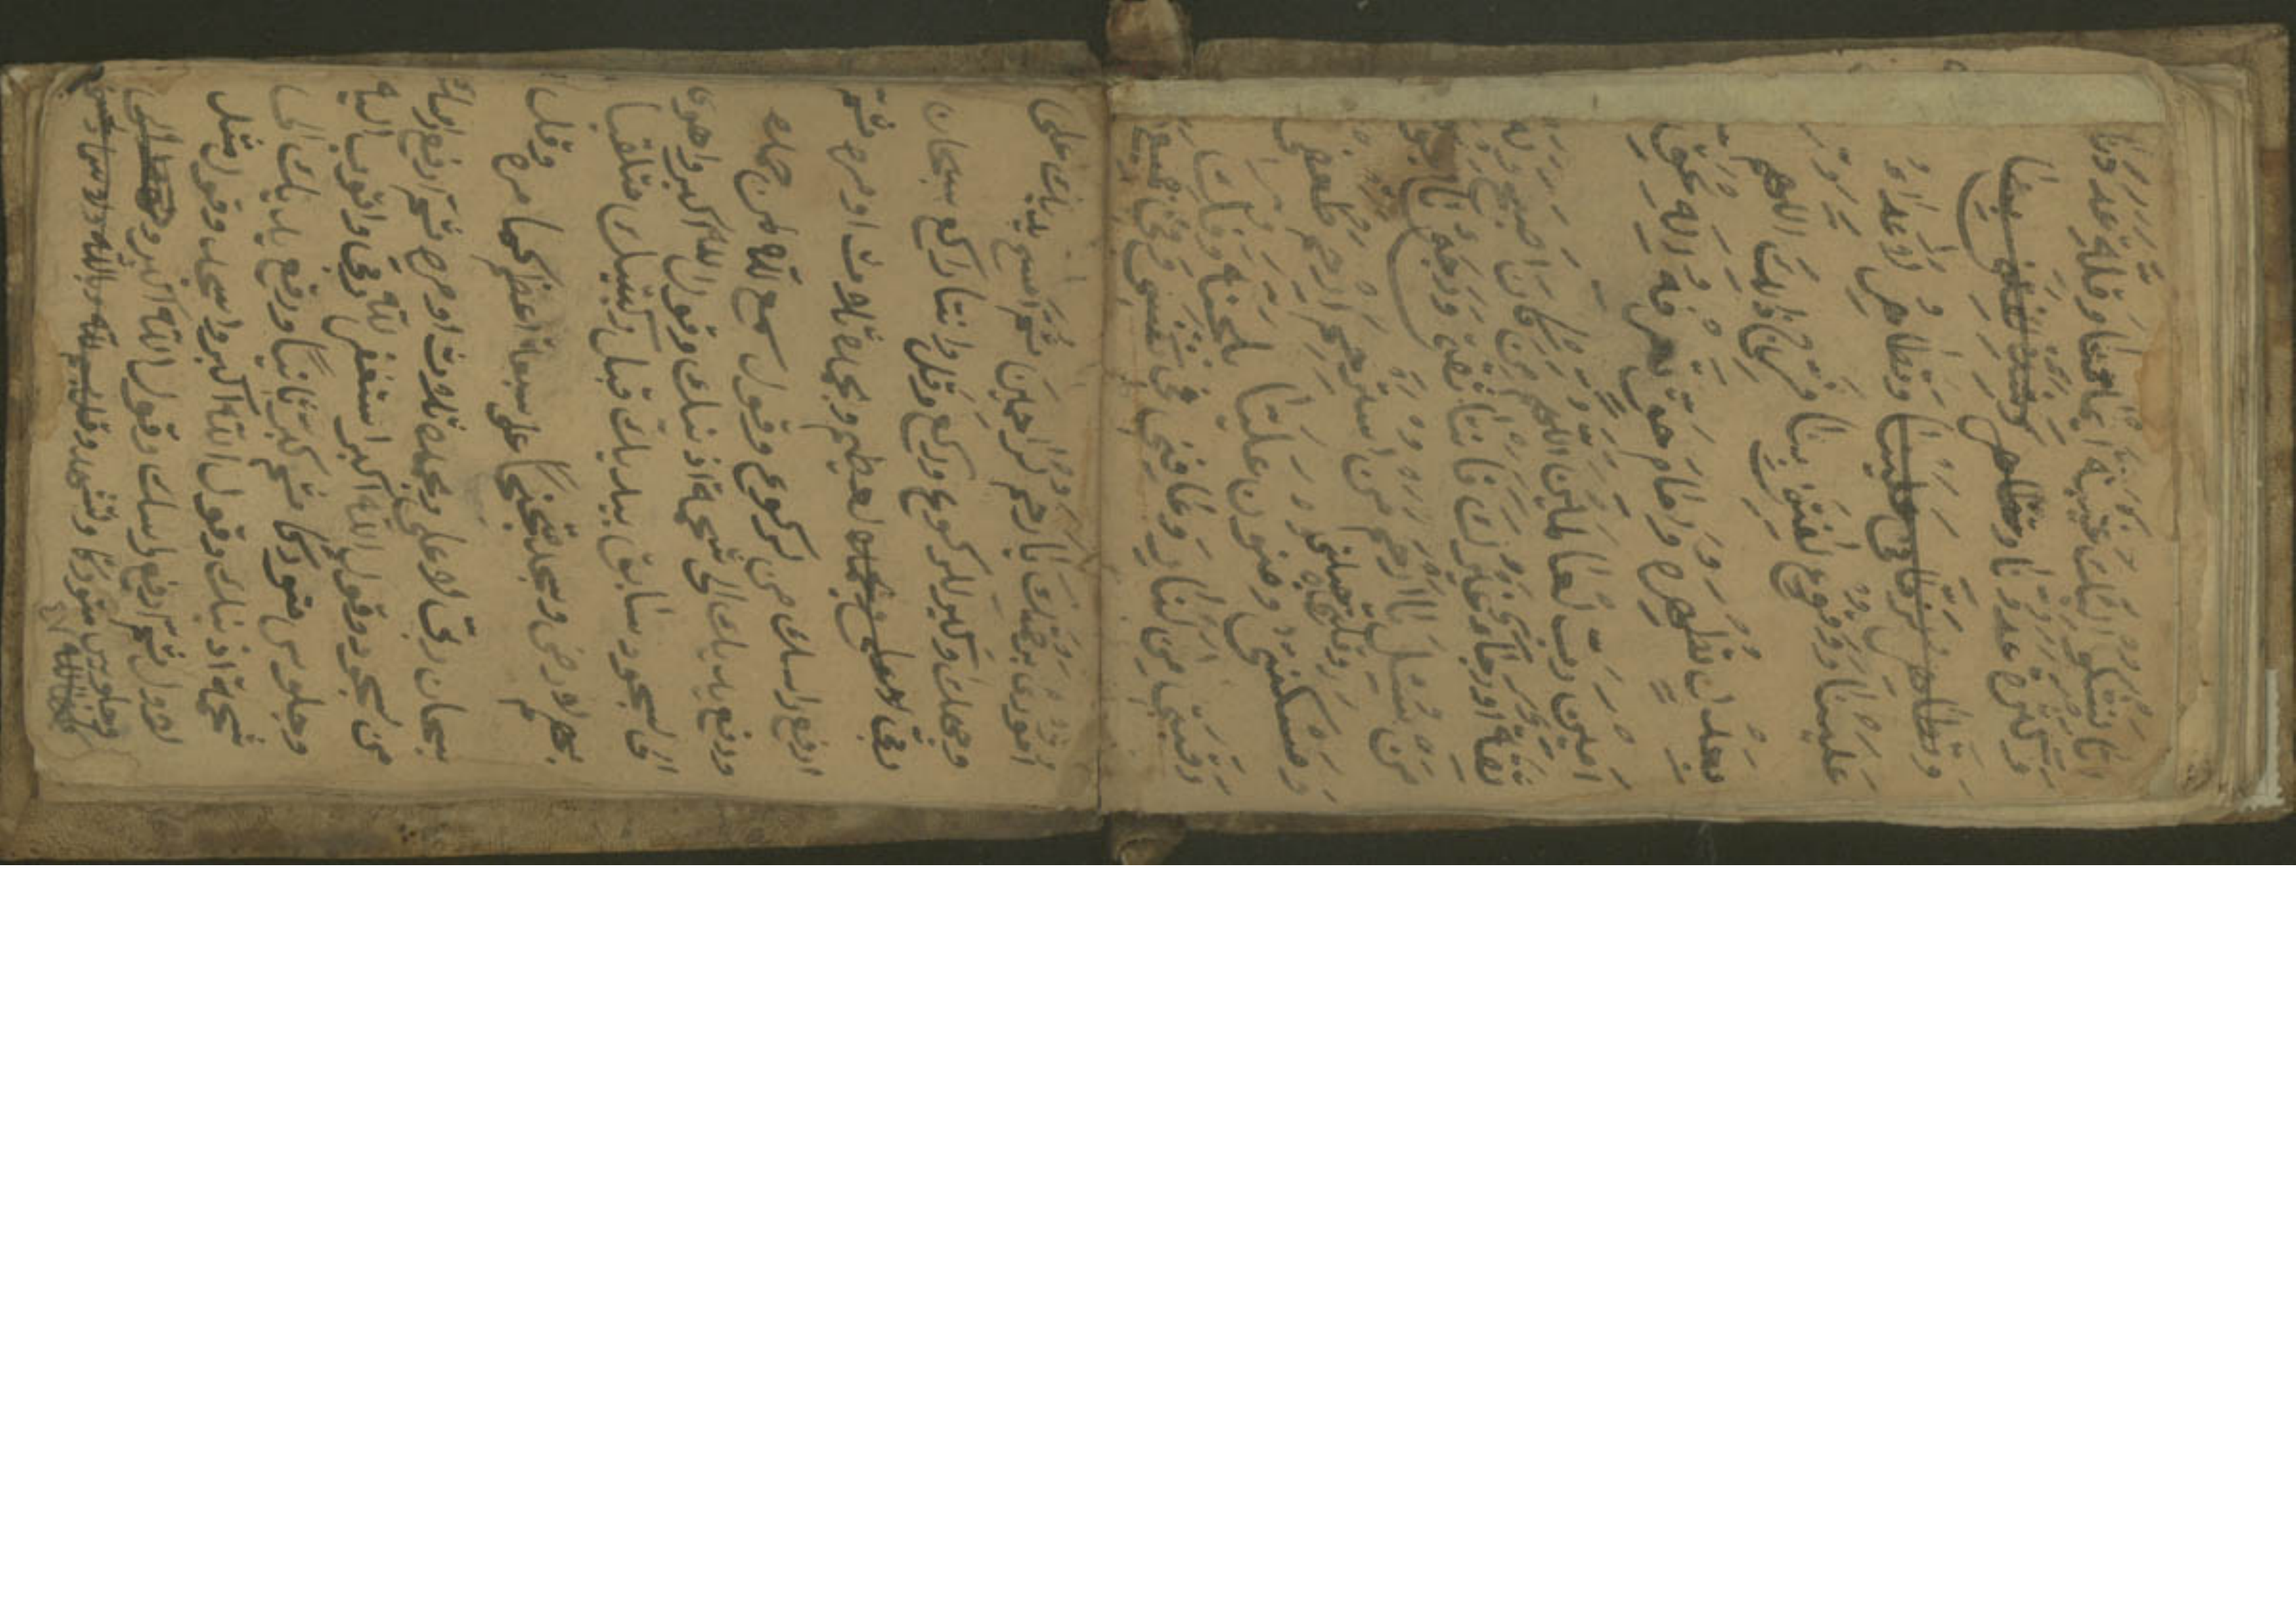 انا نشكو اليك غيبة امامنا وقلة عددنا
وكثرة عدونا وتظاهر وشدة الفتن بينا
وتظاهر الزمان علينا وتظاهر الاعداء
علينا ووقوع الفتن بينا ففرج ذلك اللهم
بعدل تظهره وامام حق تعرفه اله الحق
امين رب العالمين اللهم من كان اصبح وله
ثقة او رجاء غيرك فانت ثقتي ورجائي يا اجود
من سئل يا ارحم من استرحم ارحم ضعفي
ومسكنتي وقلة حيلتي وامنن علينا بالجنة وفك
رقبتي من النار وعافني في نفسي وفي جميع
اموري برحمتك يا ارحم الراحمين ثم امسح يديك على
وجهك وكبر للركوع وركع وقل وانتا راكع سبحان
ربي العظيم وبحمده ثلاث اومره ثم
ارفع راسك من الركوع وقول سمع الله لمن حمده
ورفع يديك الى شحمة اذنك وقول الله اكبر واهوي
الى السجود سابق بيديك قبل ركبتيك متلقيا
بهم الارض وسجد على سبعة اعظم كما مره وقل
سبحان ربي الاعلى وبحمده ثلاث اومره ثم ارفع راسك
من السجود وقول الله اكبر استغفر الله ربي واتوب اليه
وجلوس متوركا ثم كبر ثانيا ورفع يديك الى
شحمة اذنيك وقول الله اكبر واسجد وقول مثل
الاول ثم ارفع راسك وقول الله اكبر
وجلوس متوركا وتشهد وقل بسم الله وبالله
كلها لله